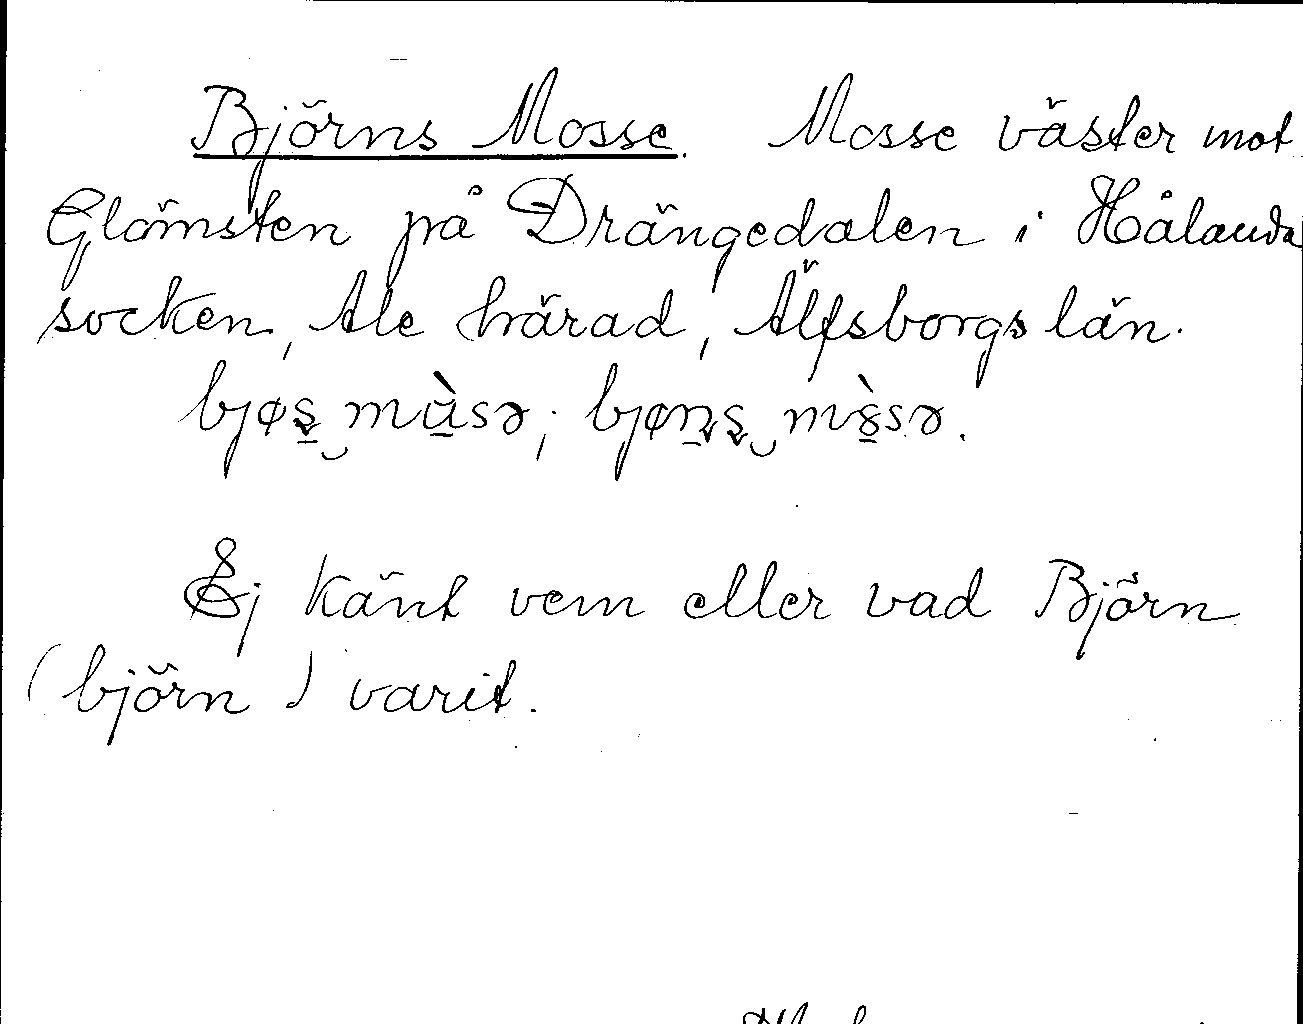 Björns Mosse. Mosse väster mot
Glämsten på Drängedalen i Hålanda
socken, Ale härad, Älfsborgs län.
Ej känt vem eller vad Björn
(björn) varit.